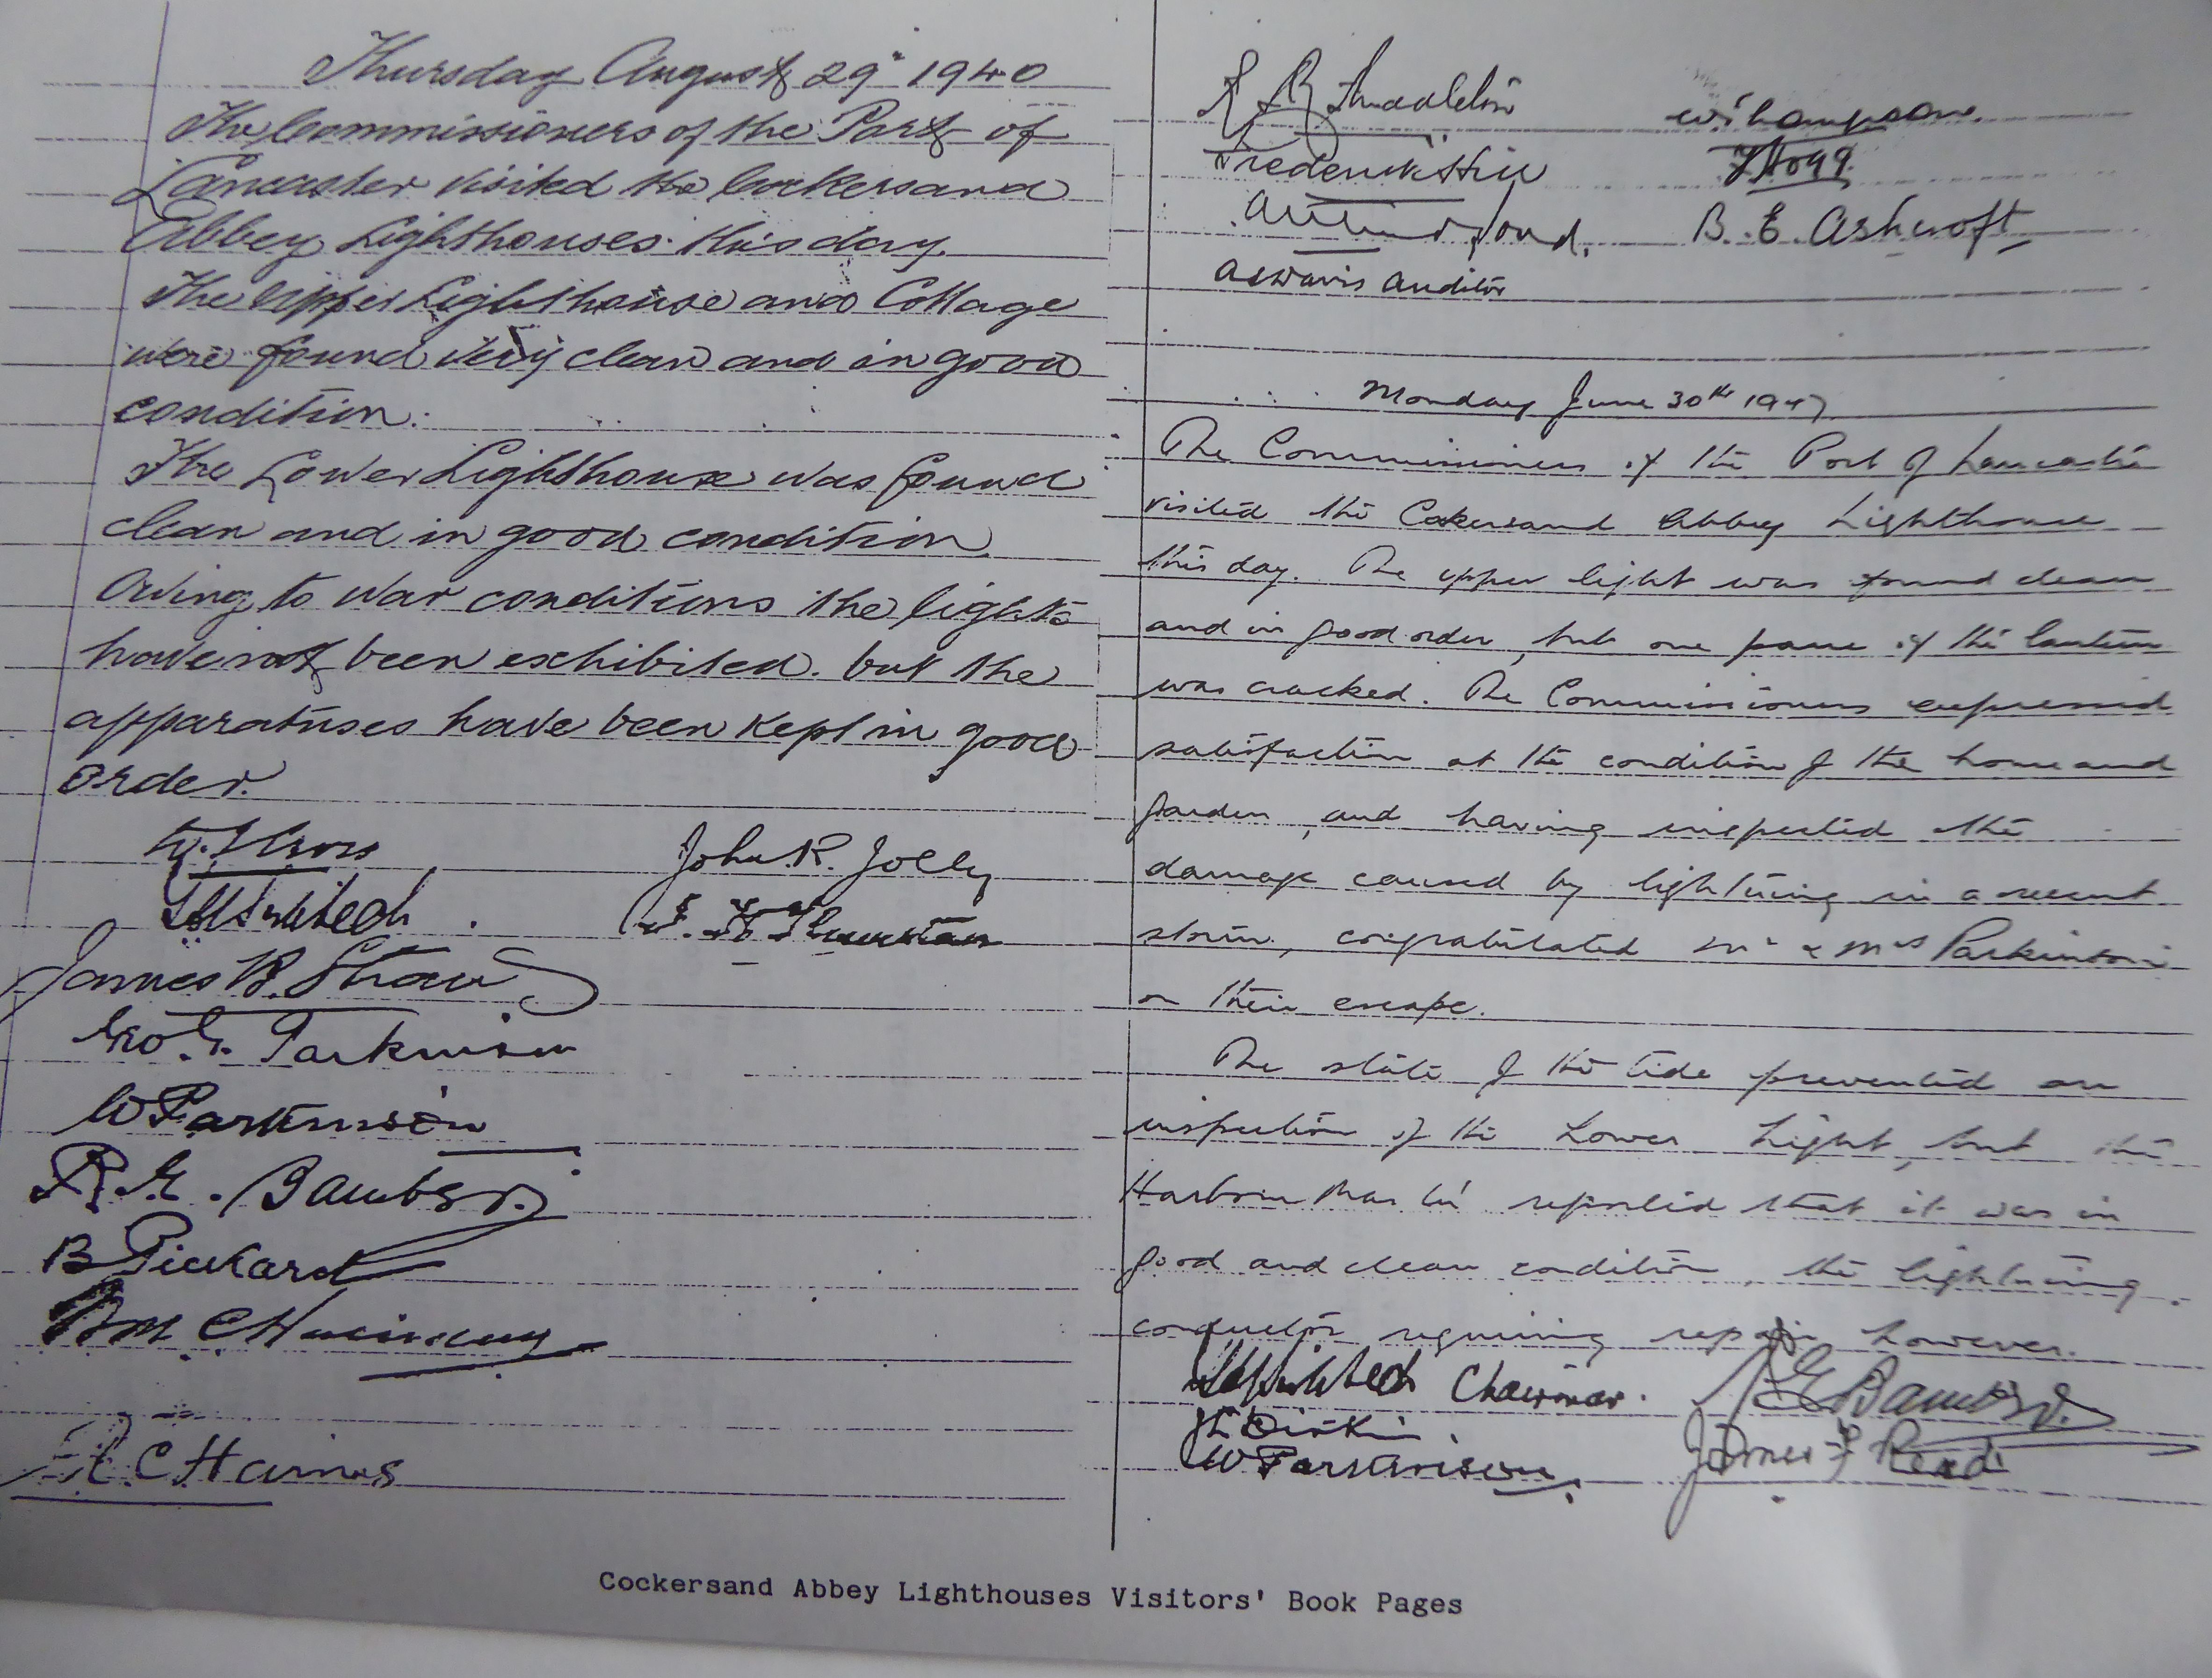 Thursday August 29th 1940
The Commissioners of the Port of
Lancaster visited the Cockersand
Abbey Lighthouses this day.
The Upper Lighthouse and Cottage
were found very clean and in good
condition.
The Lower Lighthouse was found
clean and in good condition
Owing to war conditions the lights
have not been exhibited. but the
apparatuses have been kept in good
order.
John R. Jolly
James B. Shaw
Geo. G. Parkinson
W Parkinson
R. G. Bamber.
B Pickard
C Haines
W. Thompson.
Frederick Hill
J Hogg.
B. E. Ashcroft
Auditor
Monday June 30th 1947
The Commissioners of the Port of Lancaster
visited the Cockersand Abbey Lighthouse
this day. The upper light was found clean
and in good order, but one pane of the lantern
was cracked. The Commissioners expressed
satisfaction at the condition of the house and
garden, and having inspected the
damage caused by lightning in a recent
storm, congratulated Mr & Mrs Parkinson
on their escape.
The state of the tide prevented an
inspection of the Lower Light, but the
Harbour Master reported that it was in
good and clean condition, the lightning
conductor requiring repair however.
Chairman.
R G Bamber.
W Parkinson
James F Read
Cockersand Abbey Lighthouses Visitors' Book Pages